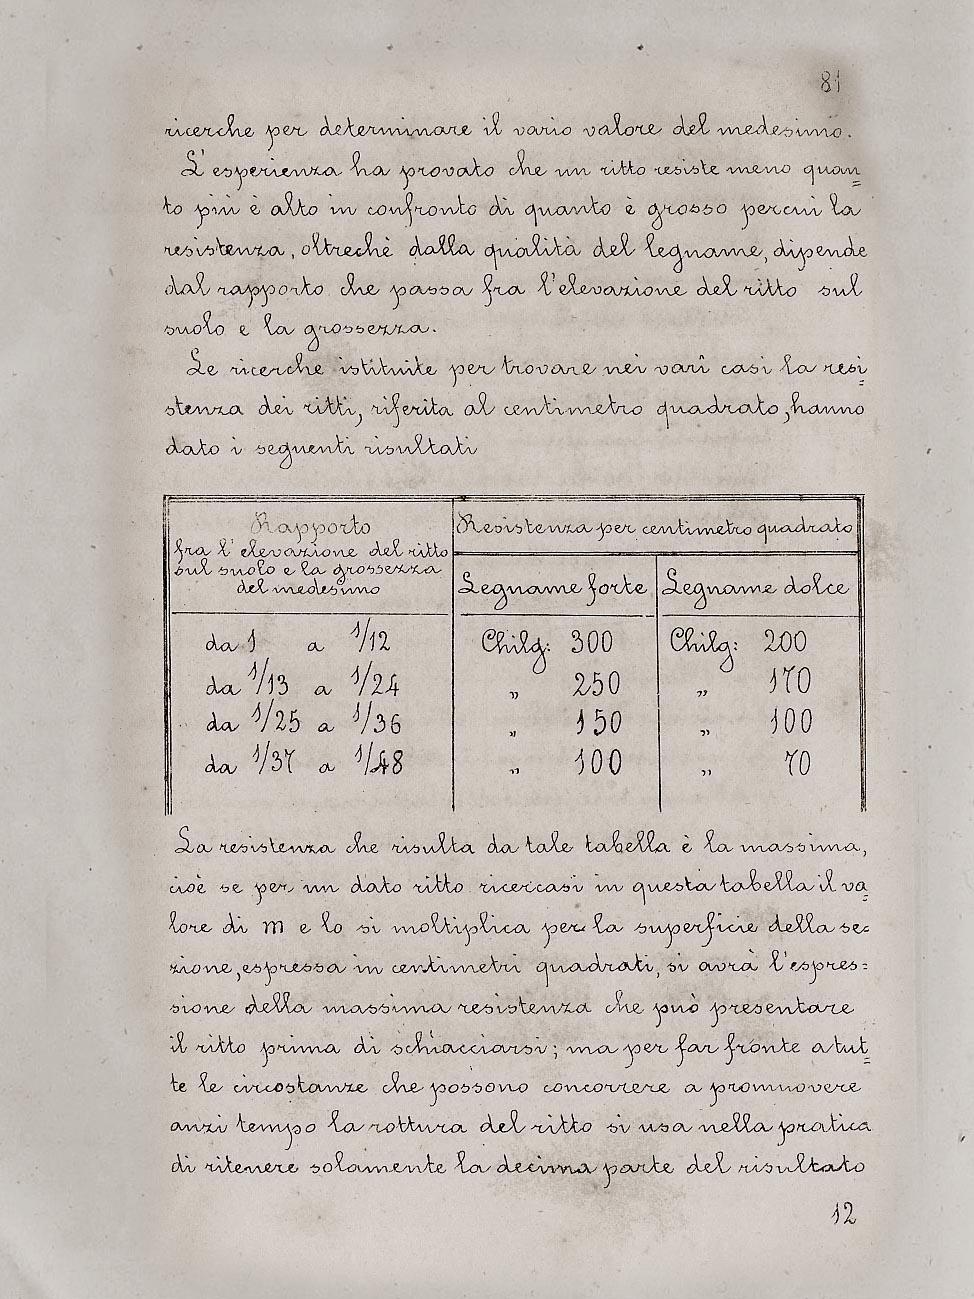 81
ricerche per determinare il vario valore del medesimo.
L'esperienza ha provato che un ritto resiste meno quan=
to più è alto in confronto di quanto è grosso percui la
resistenza, oltrechè dalla qualità del legname, dipende
dal rapporto che passa fra l'elevazione del ritto sul
suolo e la grossezza.
Le ricerche istituite per trovare nei varî casi la resi=
stenza dei ritti, riferita al centimetro quadrato, hanno
dato i seguenti risultati
Rapporto
fra l'elevazione del ritto
sul suolo e la grossezza
del medesimo
Resistenza per centimetro quadrato
Legname forte Legname dolce
da 1 a 1/12 Chilg: 300 Chilg: 200
da 1/13 a 1/24 „ 250 „ 170
da 1/25 a 1/36 „ 150 „ 100
da 1/37 a 1/48 „ 100 „ 70
La resistenza che risulta da tale tabella è la massima,
cioè se per un dato ritto ricercasi in questa tabella il va=
lore di m e lo si moltiplica per la superficie della se=
zione, espressa in centimetri quadrati, si avrà l'espres=
sione della massima resistenza che può presentare
il ritto prima di schiacciarsi; ma per far fronte a tut=
te le circostanze che possono concorrere a promuovere
anzi tempo la rottura del ritto si usa nella pratica
di ritenere solamente la decima parte del risultato
12